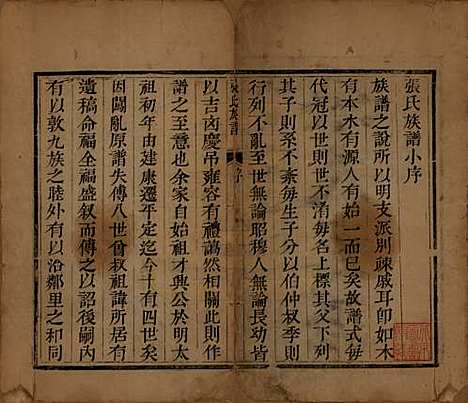 張氏族譜小序
族譜之說所以明支派別疎戚耳卽如木
有本水有源人有始一而已矣故譜式每
代冠以世則世不淆每名係其父下列
其子則系不紊每生子分以伯仲叔季則
行列不亂至世無論昭穆人無論長幼皆
張氏族譜
序
以吉凶慶吊雍容有禮藹然相關此則作
譜之至意也余家自始祖才興公於明太
祖初年由建康遷平定迄今十有四世矣
因闖亂原譜失傳八世曾叔祖諱所居有
遺稿命福全福盛叙而傳之以詔後嗣內
有以敦九族之睦外有以洽鄰里之和同